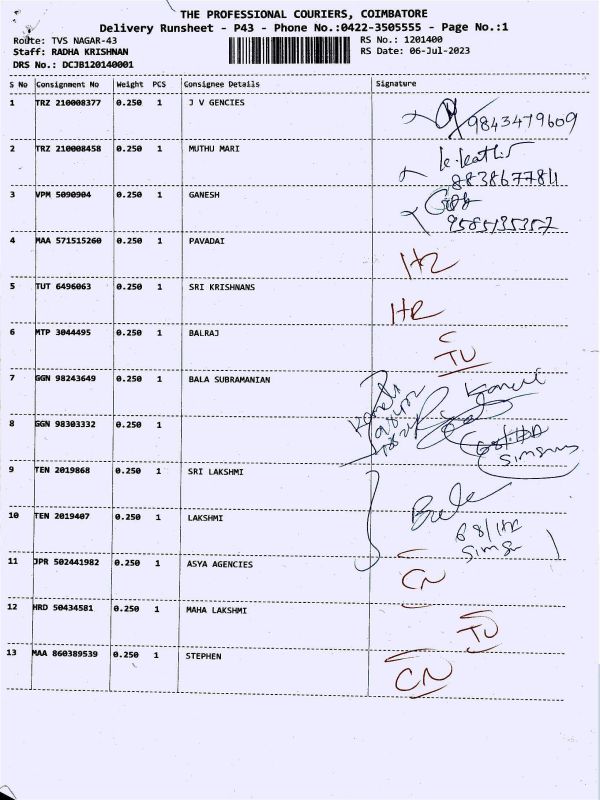 THE PROFESSIONAL COURIERS, COIMBATORE
Delivery Runsheet - P43 - Phone No.:0422-3505555 - Page No.:1
Route: TVS NAGAR-43 RS No.: 1201400
Staff: RADHA KRISHNAN RS Date: 06-Jul-2023
DRS No.: DCJB120140001
S No Consignment No Weight PCS Consignee Details Signature
1 TRZ 210008377 0.250 1 J V GENCIES
9843479609
2 TRZ 210008458 0.250 1 MUTHU MARI
8838677811
3 VPM 5090904 0.250 1 GANESH
9585135357
4 MAA 571515260 0.250 1 PAVADAI
5 TUT 6496063 0.250 1 SRI KRISHNANS
6 MTP 3044495 0.250 1 BALRAJ
7 GGN 98243649 0.250 1 BALA SUBRAMANIAN
8 GGN 98303332 0.250 1
9 TEN 2019868 0.250 1 SRI LAKSHMI
10 TEN 2019407 0.250 1 LAKSHMI
11 JPR 502441982 0.250 1 ASYA AGENCIES
CN
12 HRD 50434581 0.250 1 MAHA LAKSHMI
13 MAA 860389539 0.250 1 STEPHEN
CN